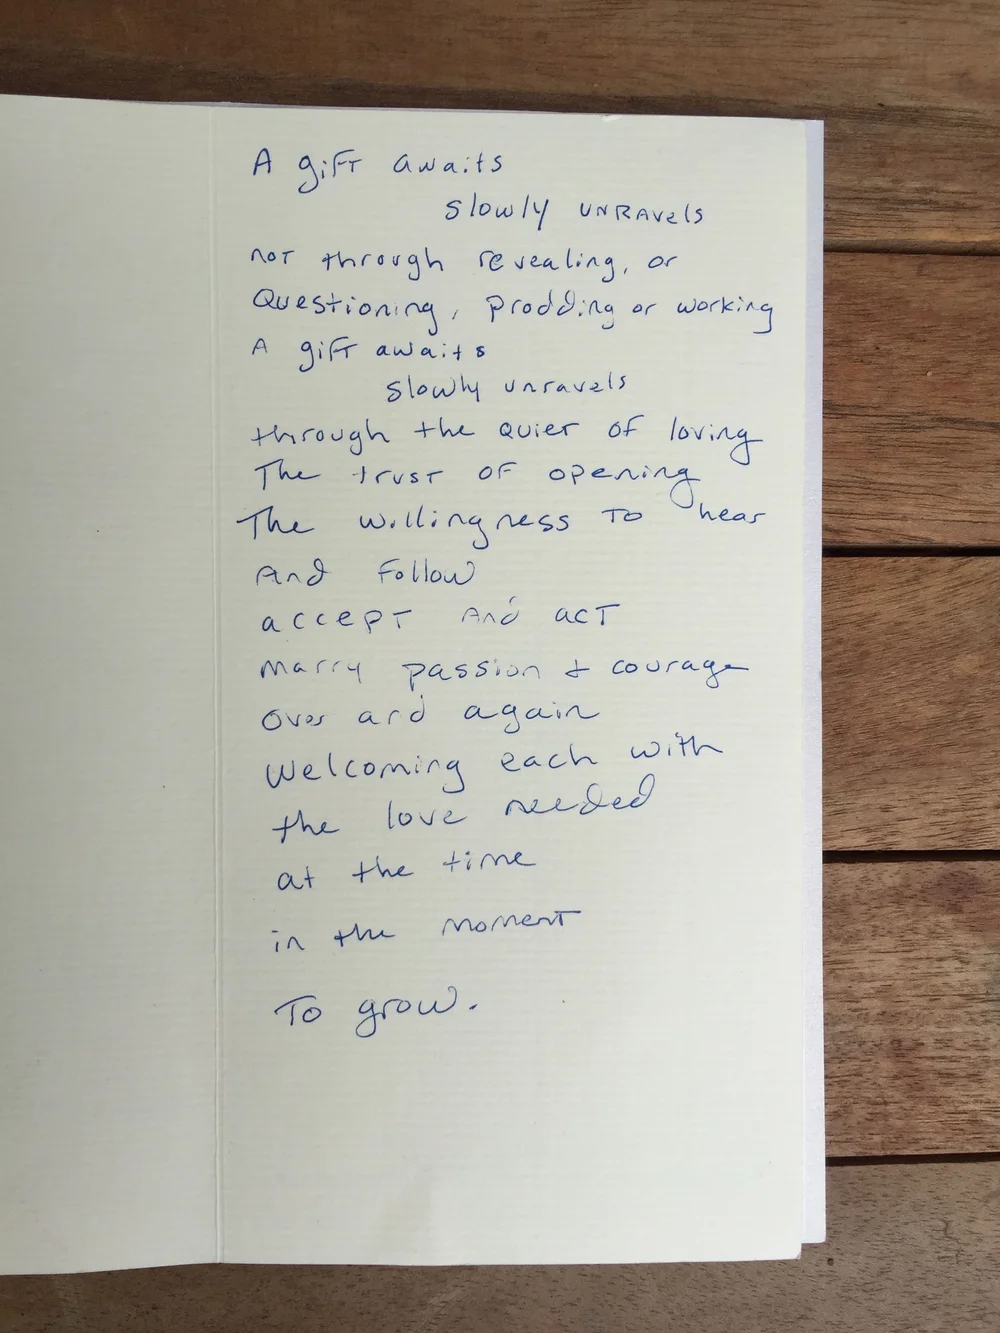 A gift awaits
slowly unravels
not through revealing, or
Questioning, prodding or working
A gift awaits
slowly unravels
through the quiet of loving
The trust of opening
The willingness to hear
And follow
accept and act
marry passion + courage
over and again
Welcoming each with
the love needed
at the time
in the moment
To grow.